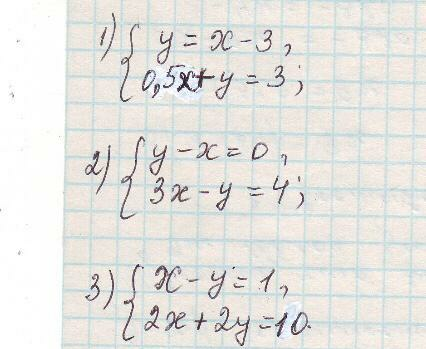 1) { y = x - 3,
0,5x + y = 3;
2) { y - x = 0,
3x - y = 4;
3) { x - y = 1,
2x + 2y = 10.